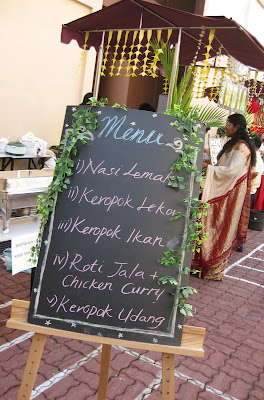 Menu
i) Nasi Lemak
ii) Keropok Lekor
iii) Keropok Ikan
iv) Roti Jala +
Chicken Curry
v) Keropok Udang